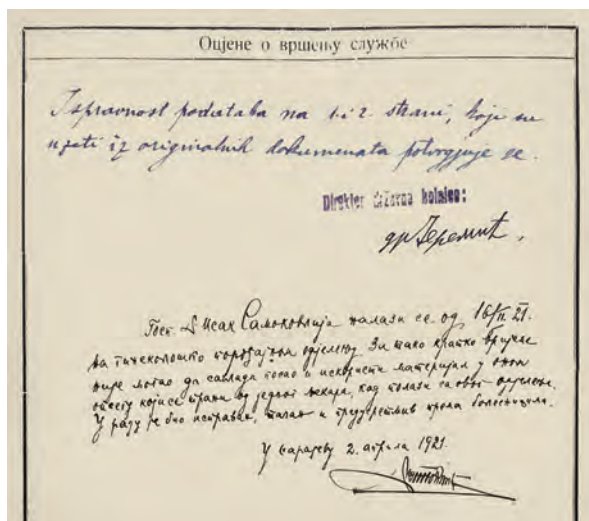 Оцјене о вршењу службе
Ispravnost podataka na 1. i 2. strani, koje su
uzeti iz originalnih dokumenata potvrgjuje se.
Direktor državne bolnice:
др Јеремић,
Госп. Др Исак Самоковлија налази се од 16/II 21.
на гинеколошко порођајном одјелењу. За тако кратко вријеме
није могао да савлада посао и искористи материјал у оном
опсегу који се тражи од једног лекара, кад полази са овог одјелења.
У раду је био исправан, тачан и предусретљив према болесницима.
У Сарајеву 2. априла 1921.